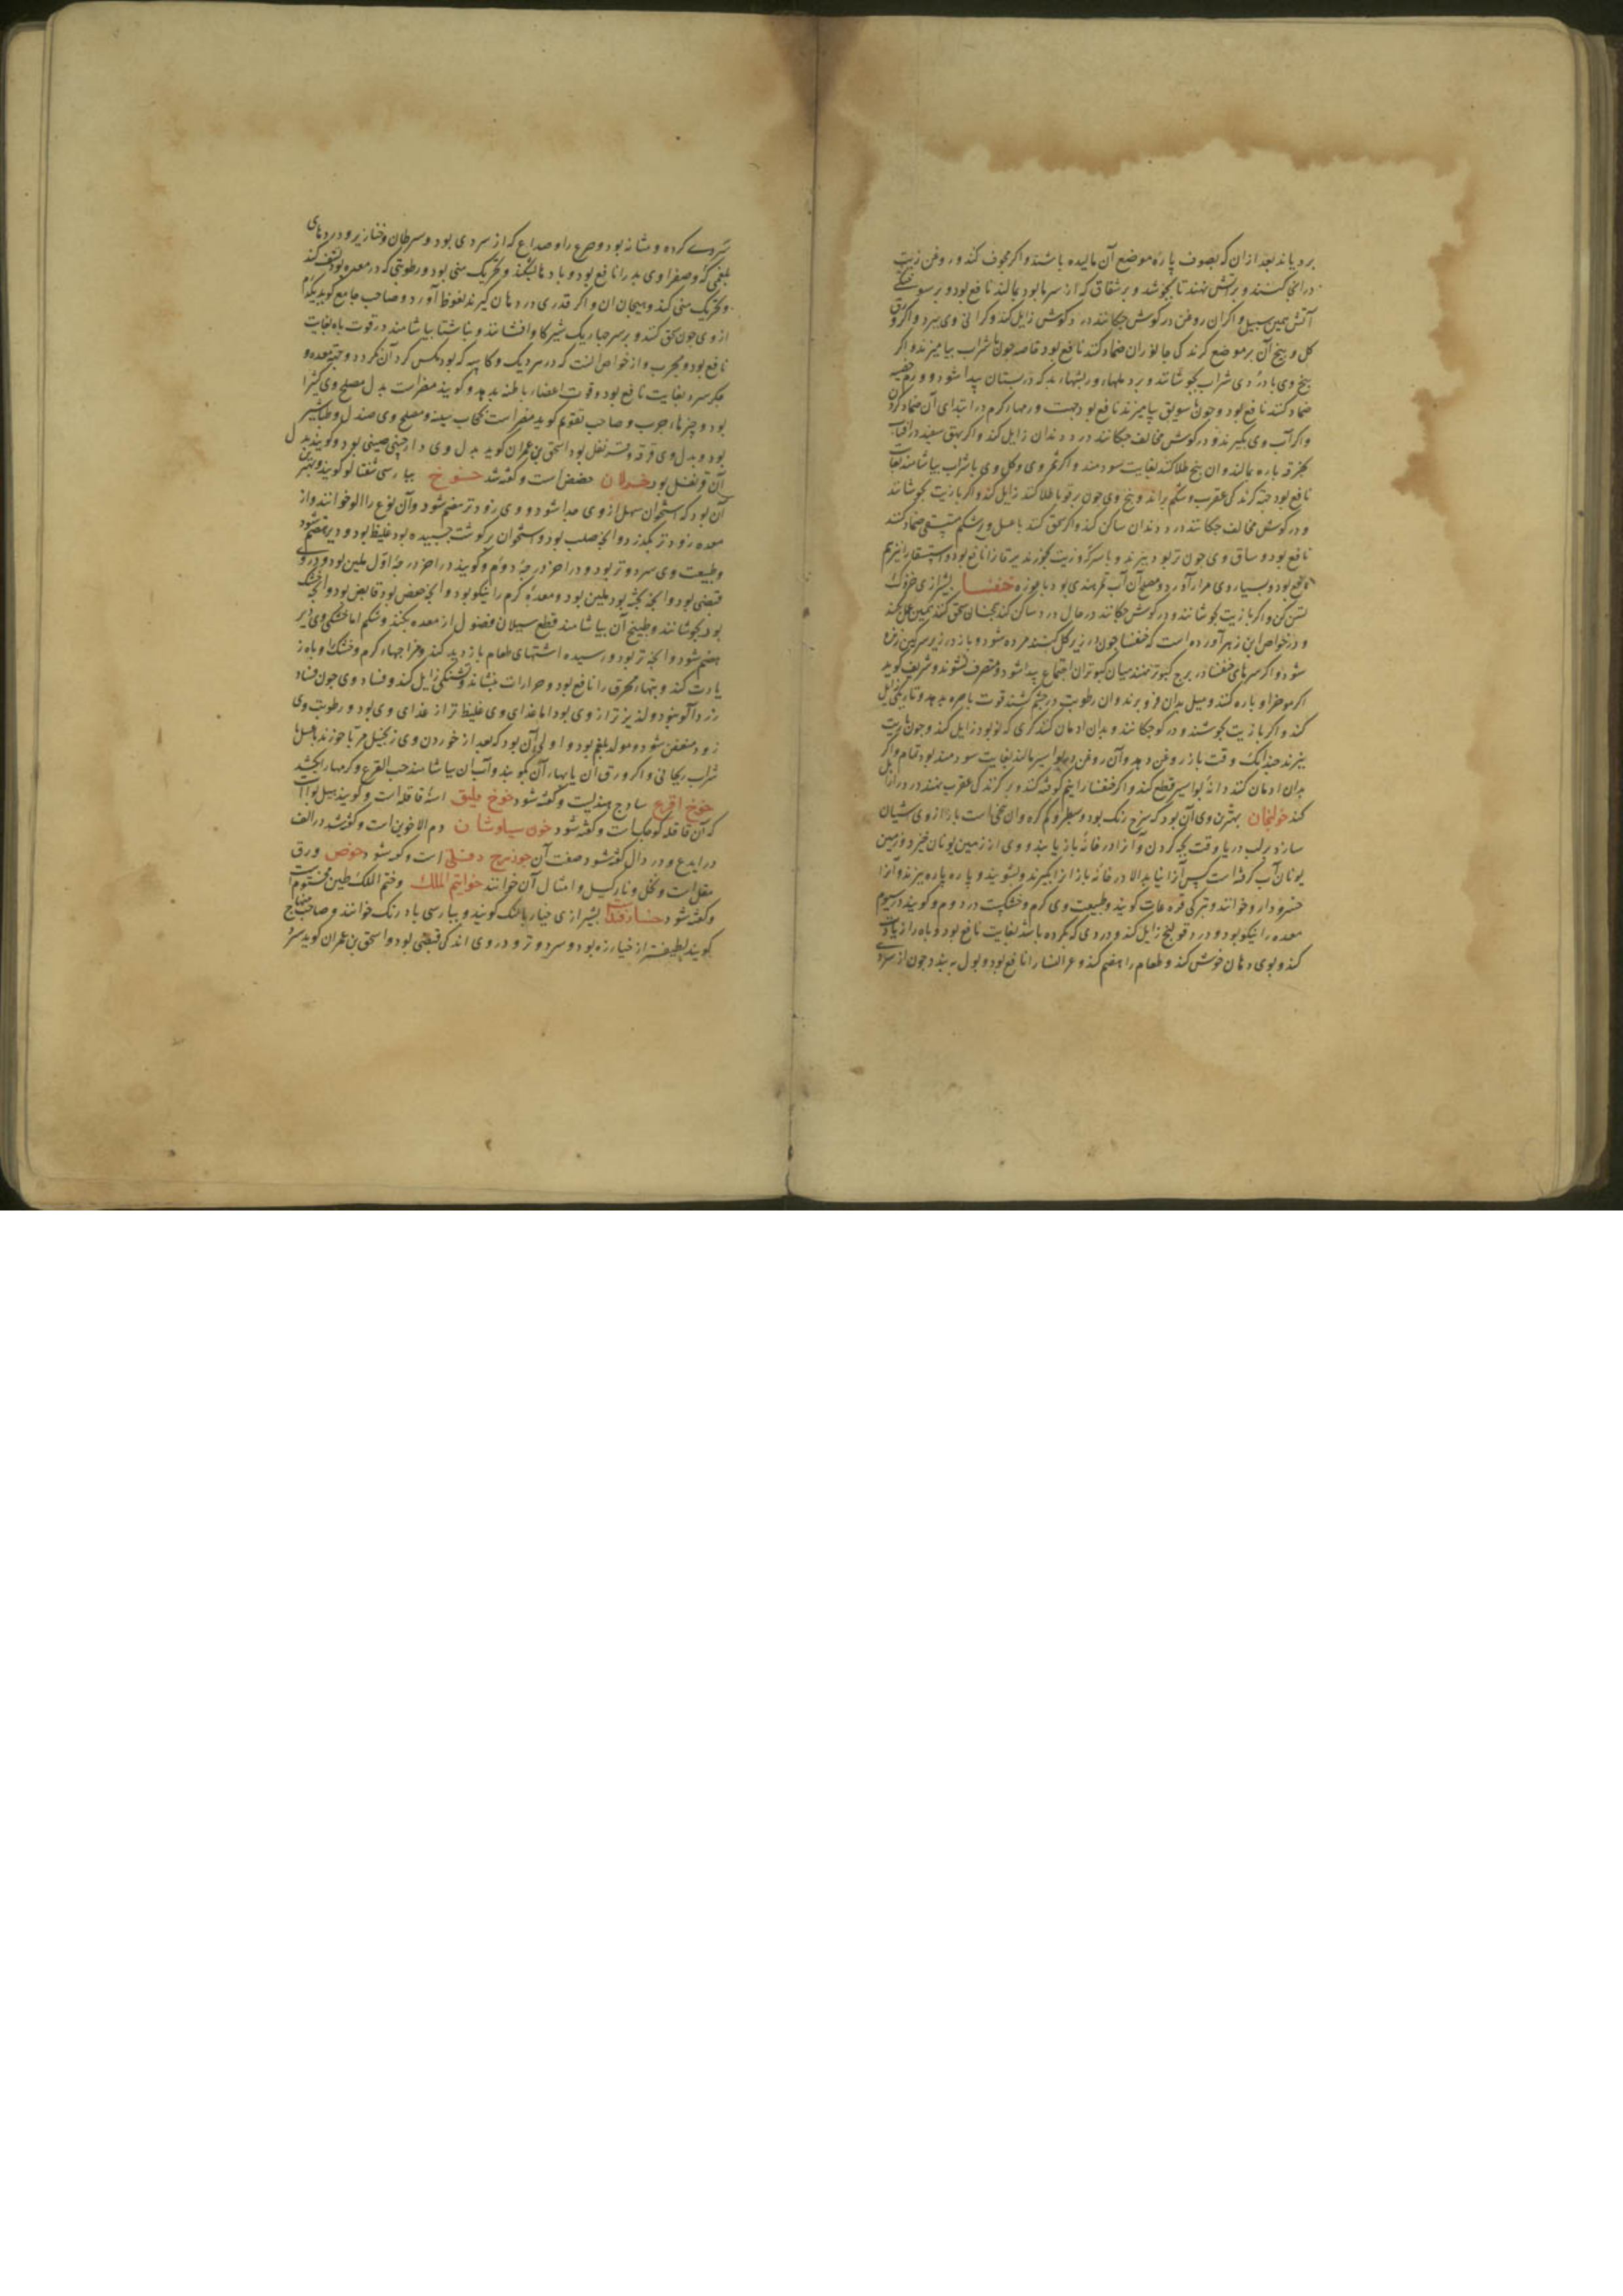 برویاند بعد از ان که بصوف پاره موضع آن مالیده باشند و اکر مجوف کنند و روغن زیت
در انجا کنند و بر آتش نهند تا بجوشد و بر شقاق که از سرما بود بمالند نافع بود و بر سوختکی
آتش همین سبیل و اکر ان روغن در کوش چکانند درد کوش زایل کند و کرانی وی ببرد و اکر ورق
کل و بیخ آن بر موضع کزندکی جانوران ضماد کنند نافع بود خاصه چون با شراب بیامیزند و اکر
بیخ وی با دردی شراب بجوشانند و بر دملها و ریشهاء بد که در پستان پیدا شود و ورم خصیه
ضماد کنند نافع بود و چون با سویق بیامیزند نافع بود جهت ورمهاء کرم در ابتدای آن ضماد کردن
و اکر آب وی بکیرند و در کوش مخالف چکانند درد دندان زایل کند و اکر بهق سفید در آفتاب
بخرقه پاره بمالند و ان بیخ طلا کنند بغایت سودمند و اکر ثمر وی و کل وی با شراب بیاشامند بغایت
نافع بود جهة کزندکی عقرب و شکم براند و بیخ وی چون بر قوبا طلا کنند زایل کند و اکر با زیت بجوشانند
و در کوش مخالف چکانند درد دندان ساکن کند و اکر سحق کنند با عسل و بر شکم مستسقی ضماد کنند
نافع بود و ساق وی چون تر بود بپزند و با سرکه و زیت بخورند یرقانرا نافع بود و استسقا را نیز هم
نافع بود و بسیار وی مرار آورد و مصلح آن آب تمر هندی بود یا موزه خنفسا بشیرازی خزوک
کویند و اکر با زیت بجوشانند و در کوش چکانند در حال درد ساکن کند همچنان سحق کنند همین عمل کند
و در خواص ابن زهر آورده است که خنفسا چون در زیر کل کنند مرده شود و باز در زیر سرکین زنده
شود و اکر سرهای خنفسا در برج کبوتر نهند میان کبوتران اجتماع پیدا شود و متفرق نشوند و شریف کوید
اکر موخر او پاره کنند و میل بدان فرو برند و ان رطوبت در چشم کشند قوت باصره بدهد و تاریکی زایل
کند و اکر با زیت بجوشند و در کوش چکانند و بدان ادمان کنند کری که نو بود زایل کند و چون با زیت
بپزند چندانک وقت باز روغن دهد و آن روغن بر بواسیر مالند بغایت سودمند بود تمام و اکر
بدان ادمان کنند دانه بواسیر قطع کند و اکر خنفسا را نیم کوفته کنند و بر کزندکی عقرب نهند درد را زایل
کند خولنجان بهترین وی آن بود که سرخ رنک بود و سطبر و کم کره و ان بیخیاست باز از وی آشیان
سازد بر لب دریا وقت بچه کردن و آنرا در خانه باز یابند و وی از زمین یونان خیزد و زمین
یونان آب کرفته است پس آنرا نیابند الا در خانه باز از انجا بکیرند و بشویند و پاره پاره ببرند و آنرا
خسرو دارو خوانند و بترکی قره غات کویند و طبیعت وی کرم و خشکست در دوم و کویند در سیوم
معده را نیکو بود و درد قولنج زایل کند و دردی که بکرده باشد بغایت نافع بود و باه را زیادت
کند و بوی دهان خوش کند و طعام را هضم کند و عرق النسا را نافع بود و بول ببندد چون از سردی
سردی کرده و مثانه بود و صرع را و صداع که از سردی بود و سرطان و خنازیر و دردهای
بلغمی کهن و صفراوی بد را نافع بود و بادها بشکند و تحریک منی بود و رطوبتی که در معده بود نشف کند
و تحریک منی کند و هیجان ان و اکر قدری در دهان کیرند نعوظ آورد و صاحب جامع کوید یکدرم
از وی چون سحق کنند و بر سر چهاریک شیر کاو افشانند و بناشتا بیاشامند در قوت باه بغایت
نافع بود و مجرب و از خواص انست که در سر دیک و کاسه که بود مکس کرد آن نکردد و جهة معده و
جکر سرد بغایت نافع بود و قوت اعضاء باطنه بدهد و کویند مضر است بدل مصلح وی کتیرا
بود و چیزهاء چرب و صاحب تقویم کوید مضر است بحجاب سینه و مصلح وی صندل و طباشیر
بود و بدل وی قرفه قرنفل بود اسحق بن عمران کوید بدل وی دارچینی صینی بود و کویند بدل
آن قرنفل بود خولان حضض است و کفته شد خوخ بپارسی شفتالو کویند و بهترین
آن بود که استخوان سهل از وی جدا شود و وی زودتر هضم شود و آن نوع را الو خوانند و از
معده زودتر بکذرد و انچه صلب بود و استخوان بر کوشت چسبیده بود غلیظ بود و دیر هضم شود
و طبیعت وی سرد و تر بود و در اخر درجه دوم و کویند در اخر درجه اول ملین بود و در وی
قبضی بود و انچه پخته بود ملین بود و معده کرم را نیکو بود و انچه عفص بود قابض بود و انچه خشک
بود بجوشانند و طبیخ آن بیاشامند قطع سیلان فضول از معده بکند و شکم اما خشکی وی دیر
هضم شود و انچه تر بود و رسیده اشتهای طعام بازدید کند و مزاجهاء کرم و خشک را و باه ز
یادت کند و تبهاء محرق را نافع بود و حرارات بنشاند و تشنکی زایل کند و فساد وی چون فساد
زردآلو نبود و لذیذتر از وی بود اما غذای وی غلیظتر از غذای وی بود و رطوبت وی
زود متعفن شود و مولد بلغم بود و اولی آن بود که بعد از خوردن وی زنجبیل مربا خورند با عسل یا
شراب ریحانی و اکر ورق آن یا بهار آن بکوبند و آب ان بیاشامند حب القرع و کرمها را بکشد
خوخ اقرع ساذج هندیست و کفته شود خوخ ملیق اسم قاقله است و کویند هیل بوا است
که آن قاقله کوچک است و کفته شود خون سیاوشان دم الاخوین است و کفته شد در الف
در ایدع و در دال کفته شود صفت آن خوذرج دفلی است و کفته شود خوص ورق
مقل است و نخل و نارکیل و امثال آن خوانند خواتم الملک و ختم الملک طین مختوم است
و کفته شود خیار قثا بشیرازی خیار بالنک کویند و بپارسی بادرنک خوانند و صاحب منهاج
کویند لطیفتر از خیارزه بود و سرد و تر و در وی اندک قبضی بود و اسحق بن عمران کوید سرد